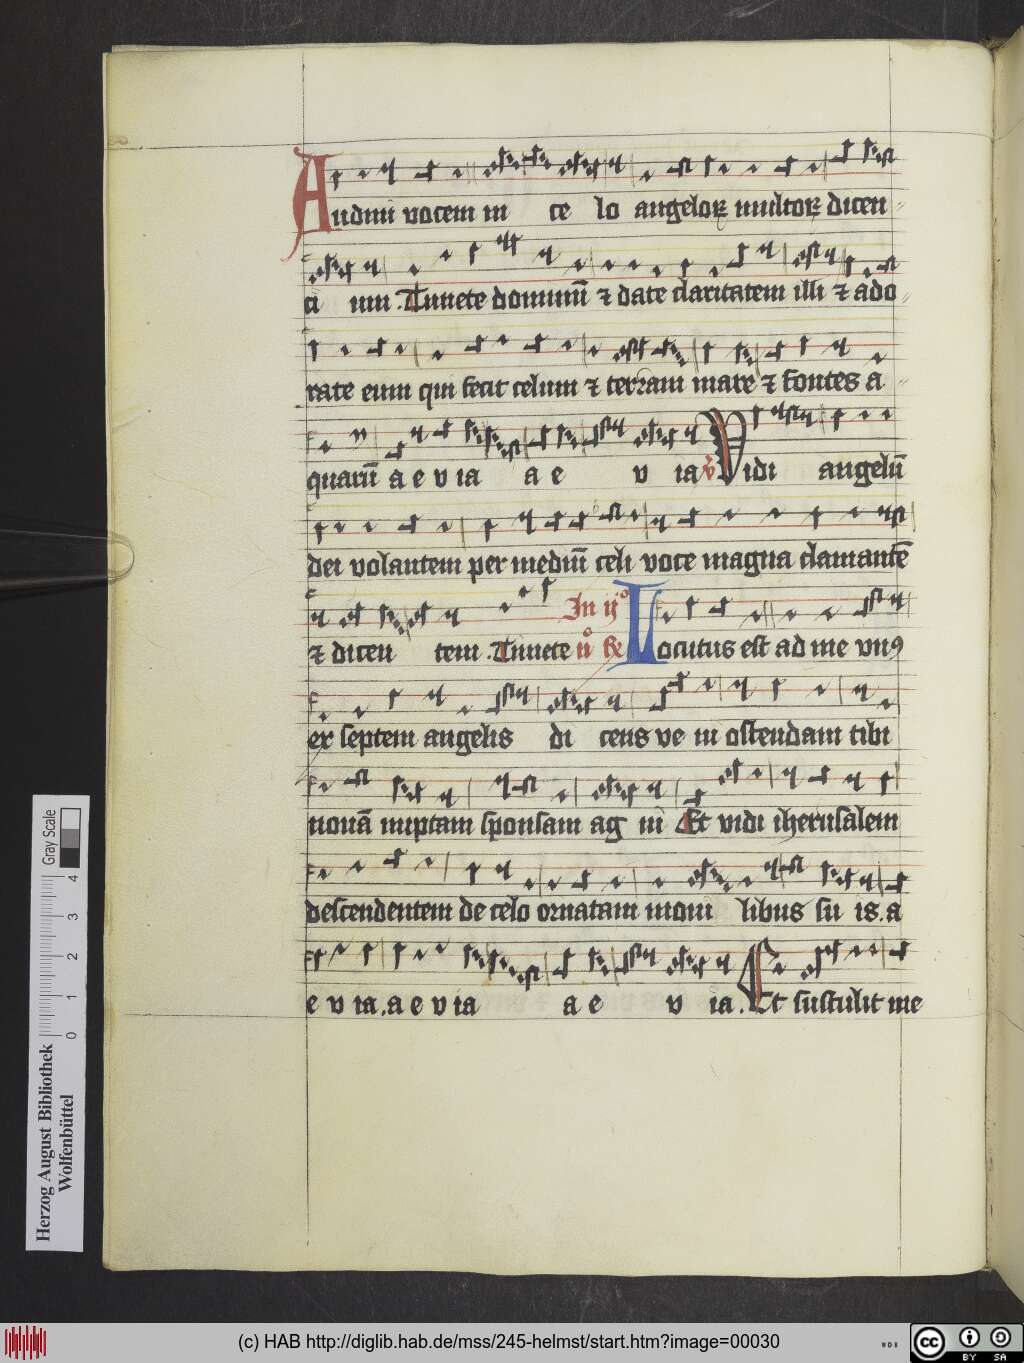 Audiui vocem in ce lo angeloꝝ multoꝝ dicen
ci um .Timete dominū ⁊ date claritatem illi ⁊ ado
rate eum qui fecit celum ⁊ terram mare ⁊ fontes a
quarū a e v ia a e v ia ℣ Vidi angelū
dei volantem per mediū celi voce magna clamantē
In ijº
⁊ dicen tem .Timete Locutus est ad me vnꝰ
ex septem angelis di cens ve ni ostendam tibi
nouā nuptam sponsam ag ni Et vidi iherusalem
descendentem de celo ornatam moni libus su is. a
e v ia .a e v ia a e v ia .Et sustulit me
Herzog August Bibliothek
Wolfenbüttel
0 1 2 3 4
Gray Scale
(c) HAB http://diglib.hab.de/mss/245-helmst/start.htm?image=00030
WDB
cc
BY SA